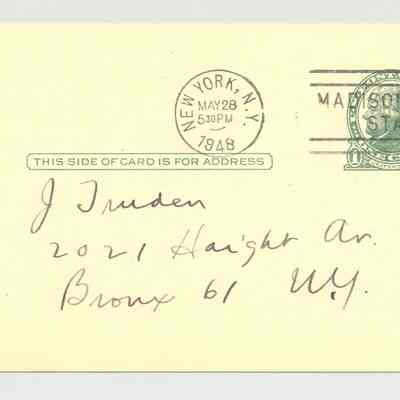 NEW YORK, N.Y.
MAY 28
5 30 PM
1948
MADISON
STA
THIS SIDE OF CARD IS FOR ADDRESS
1
J Truden
2021 Haight Av.
Bronx 61 N.Y.